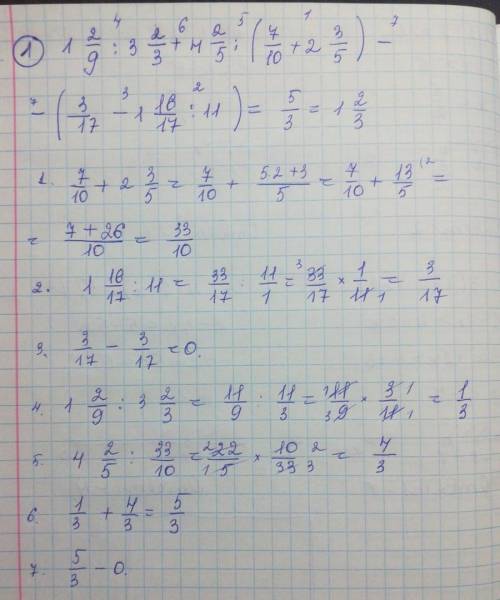 ① 1 2/9 : 3 2/3 + 4 2/5 : (7/10 + 2 3/5) -
- (3/17 - 1 16/17 : 11) = 5/3 = 1 2/3
1. 7/10 + 2 3/5 = 7/10 + 5·2+3/5 = 7/10 + 13/5 (2 =
= 7+26/10 = 33/10
2. 1 16/17 : 11 = 33/17 : 11/1 = 33/17 × 1/11 = 3/17
3. 3/17 - 3/17 = 0.
4. 1 2/9 : 3 2/3 = 11/9 : 11/3 = 11/9 × 3/11 = 1/3
5. 4 2/5 : 33/10 = 22/5 × 10/33 = 4/3
6. 1/3 + 4/3 = 5/3
7. 5/3 - 0.